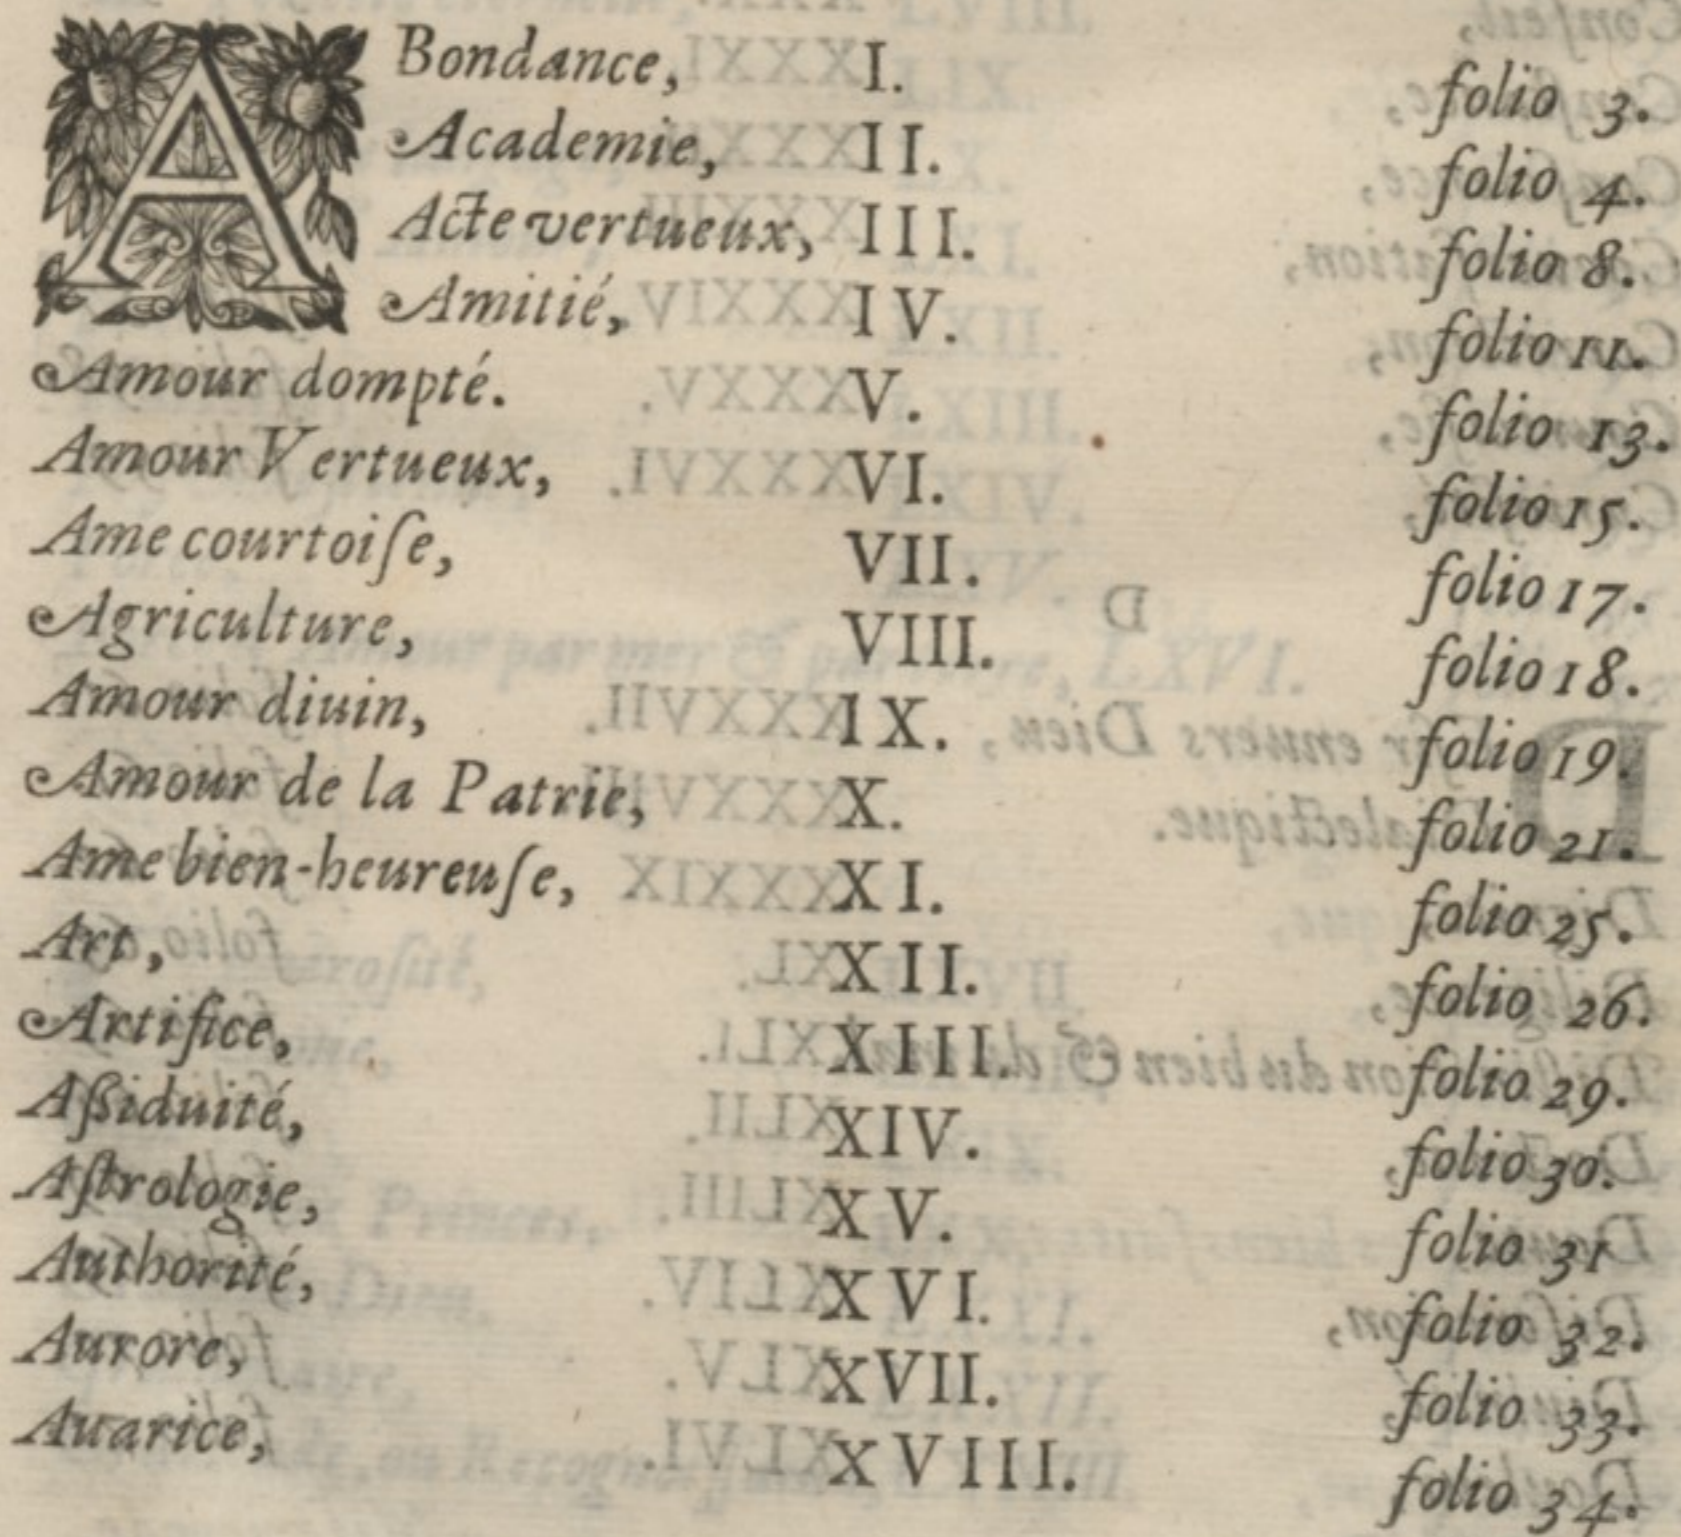 ABondance, I. folio 3.
Academie, II. folio 4.
Acte vertueux, III. folio 8.
Amitié, IV. folio 11.
Amour dompté. V. folio 13.
Amour Vertueux, VI. folio 15.
Ame courtoiſe, VII. folio 17.
Agriculture, VIII. folio 18.
Amour diuin, IX. folio 19.
Amour de la Patrie, X. folio 21.
Ame bien-heureuſe, XI. folio 25.
Art, XII. folio 26.
Artifice, XIII. folio 29.
Aſſiduité, XIV. folio 30.
Aſtrologie, XV. folio 31
Authorité, XVI. folio 32.
Aurore, XVII. folio 33.
Auarice, XVIII. folio 34.